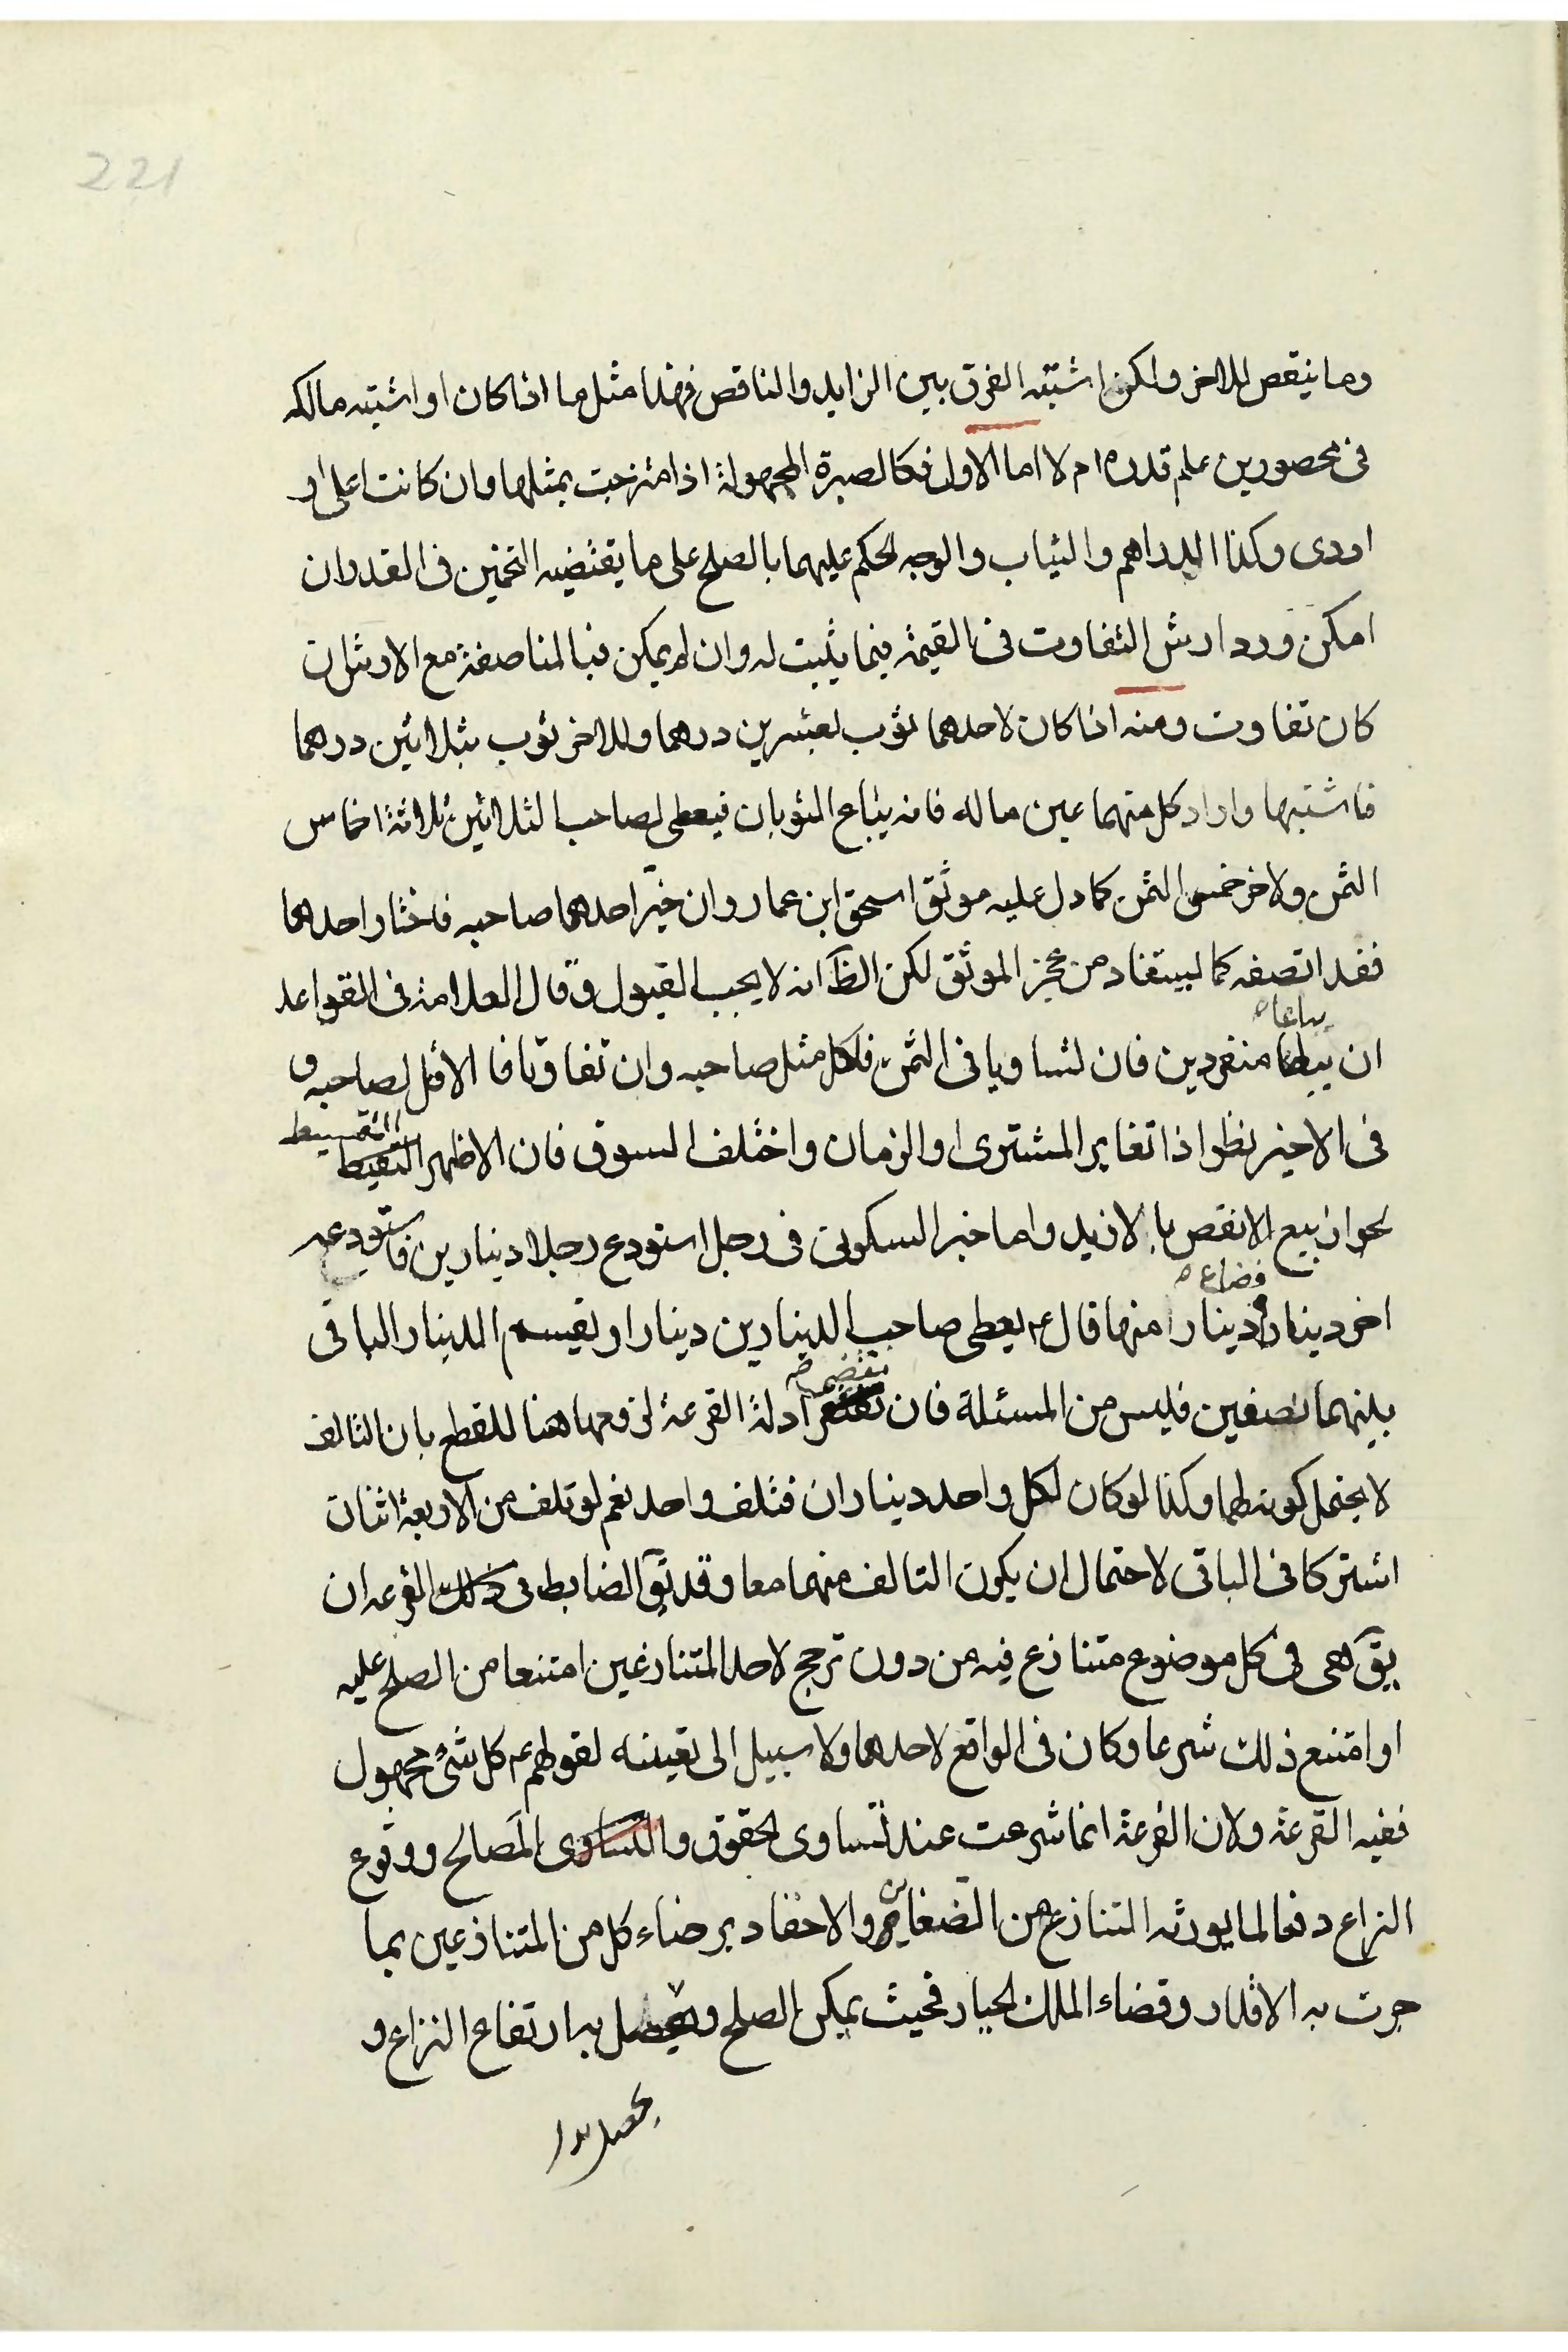 221
وما ينقص للاخر ولكن اشتبه الفرق بين الزايد والناقص فهذا مثل ما اذا كان او اشتبه مالكه
فى محصورين علم قدره ام لا اما الاول فكالصبرة المجهولة اذا امتزجت بمثلها وان كانت اعلى او
اودى وكذا الدراهم والثياب والوجه الحكم عليهما بالصلح على ما يقتضيه التخمين فى القدر وان
امكن ورد ارش التفاوت فى القيمة فيما يثبت له وان لم يمكن فبالمناصفة مع الارش ان
كان تفاوت ومنه اذا كان لاحدهما ثوب بعشرين درهما وللاخر ثوب بثلاثين درهما
فاشتبها واراد كل منهما عين ماله فانه يباع الثوبان فيعطى لصاحب الثلاثين ثلاثة اخماس
الثمن ولاخر خمسى الثمن كما دل عليه موثق اسحق ابن عمار وان خيّر احدهما صاحبه فاختار احدهما
فقد انصفه كما يستفاد من عجز الموثق لكن الظّ انه لا يجب القبول وقال العلامة فى القواعد
يباعا ص
ان منفردين فان تساويا فى الثمن فلكل مثل صاحبه وان تفاوتا فا الاقل لصاحبه و
فى الاخير نظر اذا تغاير المشترى او الزمان واختلف السوق فان الاظهر التقسيط
لجواز بيع الانقص بالازيد واما خبر السكونى فى رجل استودع رجلا دينارين فاستودعه
فضاع ص
اخر دينارا دينارا منها قال ع يعطى صاحب الدينارين دينارا ويقسم الدينار الباقى
بينهما نصفين فليس من المسئلة فان مقتضى ادلة القرعة لزومها هنا للقطع بان التالف
لا يحتمل كونه لهما وكذا لو كان لكل واحد ديناران فتلف واحد نعم لو تلف من الاربعة اثنان
اشتركا فى الباقى لاحتمال ان يكون التالف منهما معا وقد يقّ الضابط فى ذلك القرعه ان
يقّ هى فى كل موضوع متنازع فيه من دون ترجيح لاحد المتنازعين امتنعا من الصلح عليه
او امتنع ذلك شرعا وكان فى الواقع لاحدهما ولا سبيل الى تعيينه لقولهم ع كل شئ مجهول
ففيه القرعة ولان القرعة انما شرعت عند تساوى الحقوق و التساوى المصالح ووقوع
النزاع دفعا لما يورثه التنازع من الضغائن والاحقاد برضاء كل من المتنازعين بما
جرت به الاقدار وقضاء الملك الجبار فحيث يمكن الصلح ويحصل به ارتفاع النزاع و
يحصل بدا